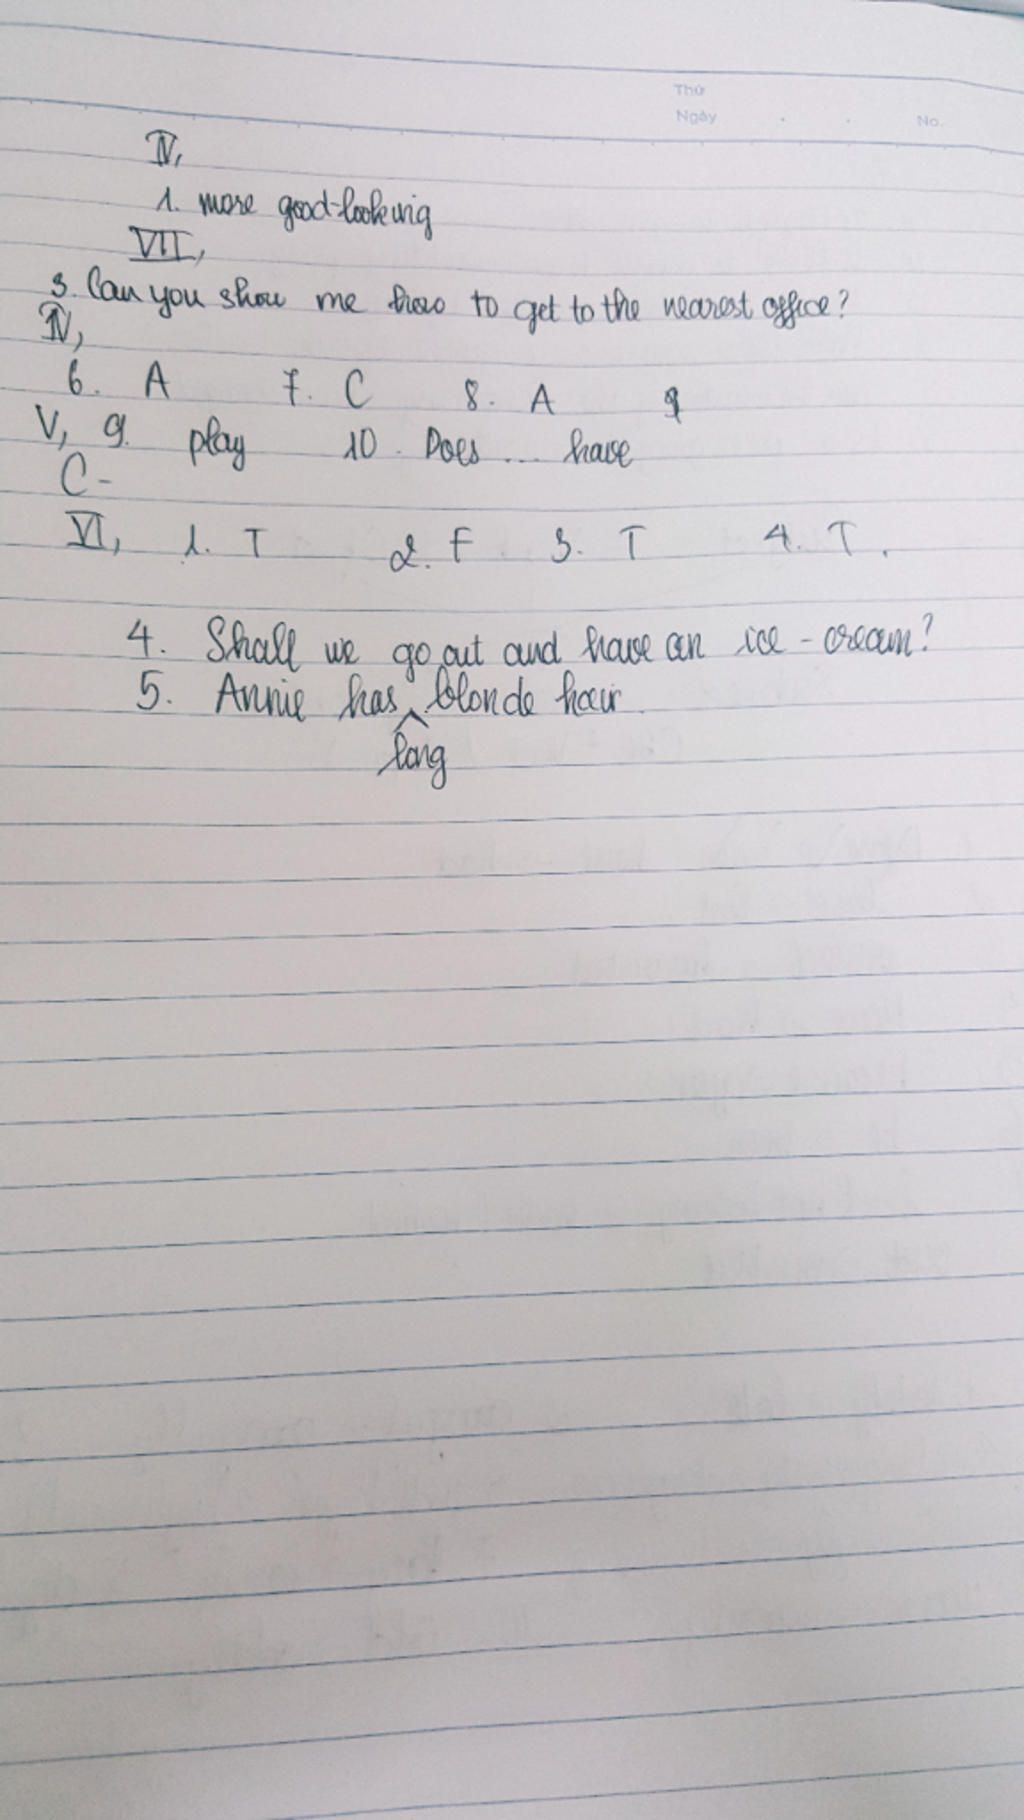 Thứ
Ngày . . No.
IV,
1. more good-looking
VII,
3. Can you show me how to get to the nearest office?
IV,
6. A 7. C 8. A 9
V, 9. play 10. Does ... have
C -
VI, 1. T 2. F 3. T 4. T.
4. Shall we go out and have an ice - cream?
5. Annie has blonde hair.
long